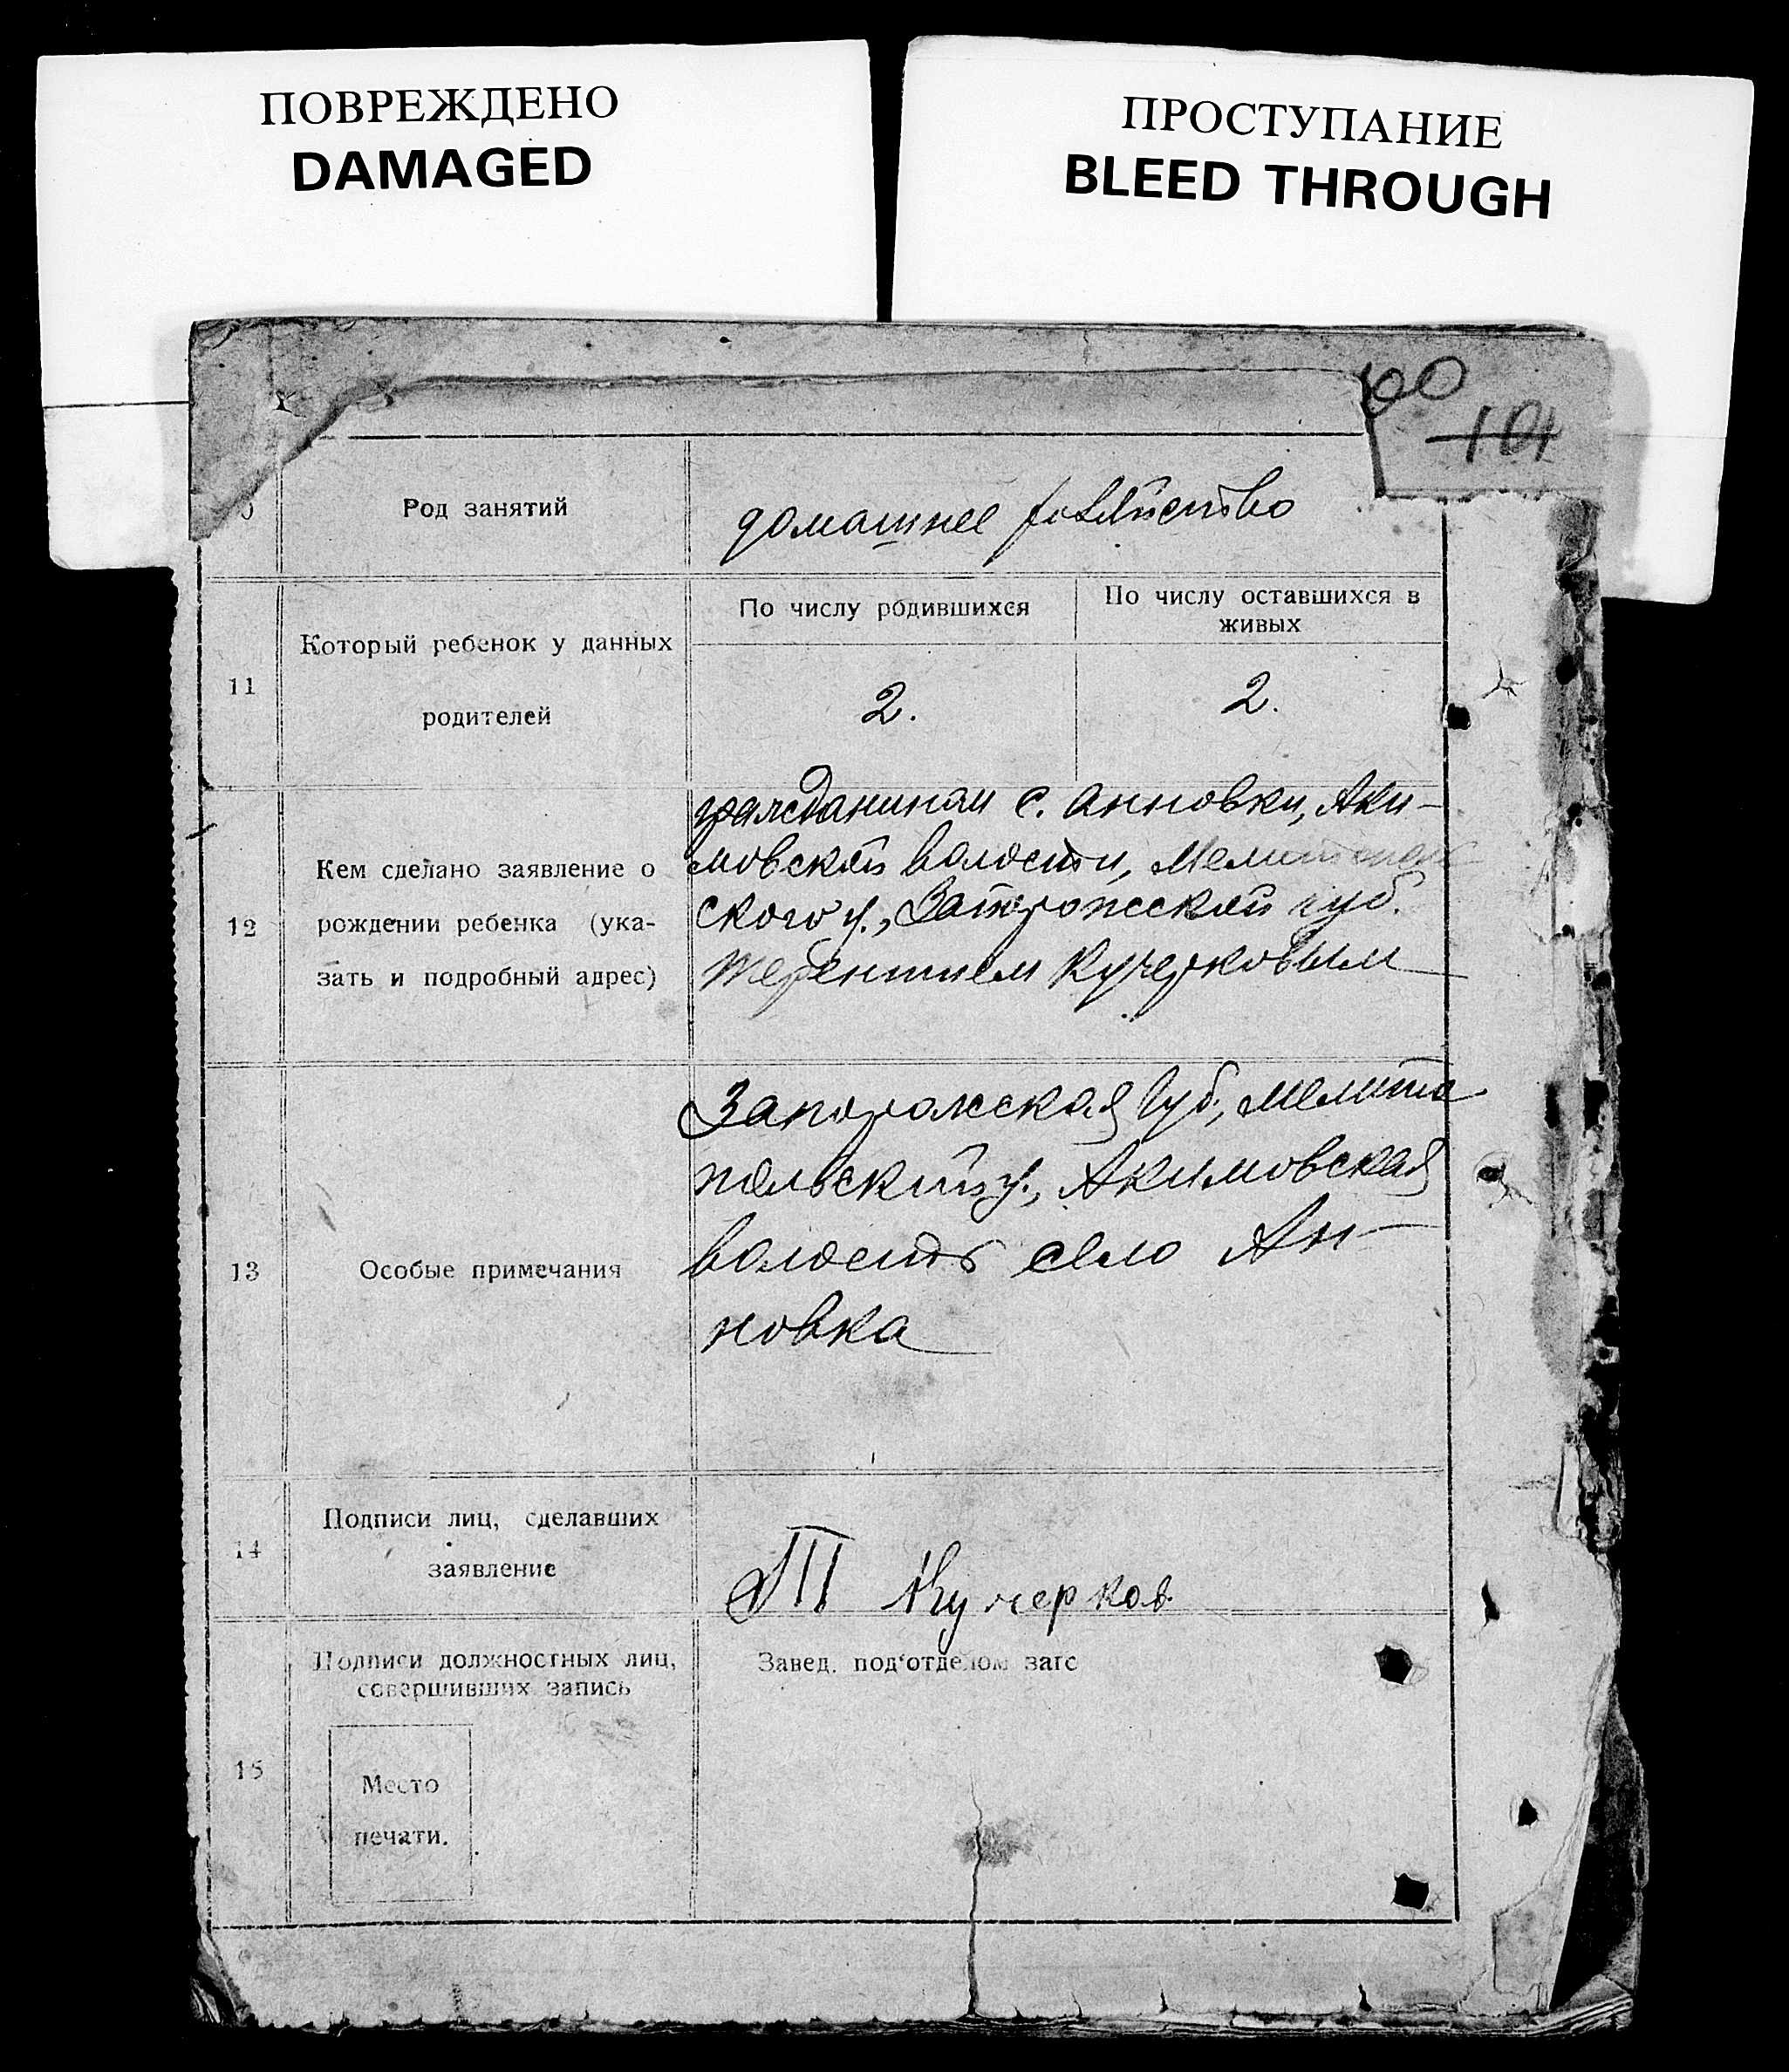 ПОВРЕЖДЕНО
DAMAGED
ПРОСТУПАНИЕ
BLEED THROUGH
100
101
Род занятий
домашнее хозяйство
11
Который ребенок у данных
родителей
По числу родившихся
По числу оставшихся в
живых
2.
2.
12
Кем сделано заявление о
рождении ребенка (ука-
зать и подробный адрес)
гражданином с. Анновки, Аки-
мовской волости, Мелитополь
ского у., Запорожской губ.
Терентием Кучерковым
13
Особые примечания
Запорожская губ., Мелито
польский у., Акимовская
волость село Ан-
новка
14
Подписи лиц, сделавших
заявление
Т Кучерков.
15
Подписи должностных лиц,
совершивших запись
Место
печати.
Завед. под'отделом загс